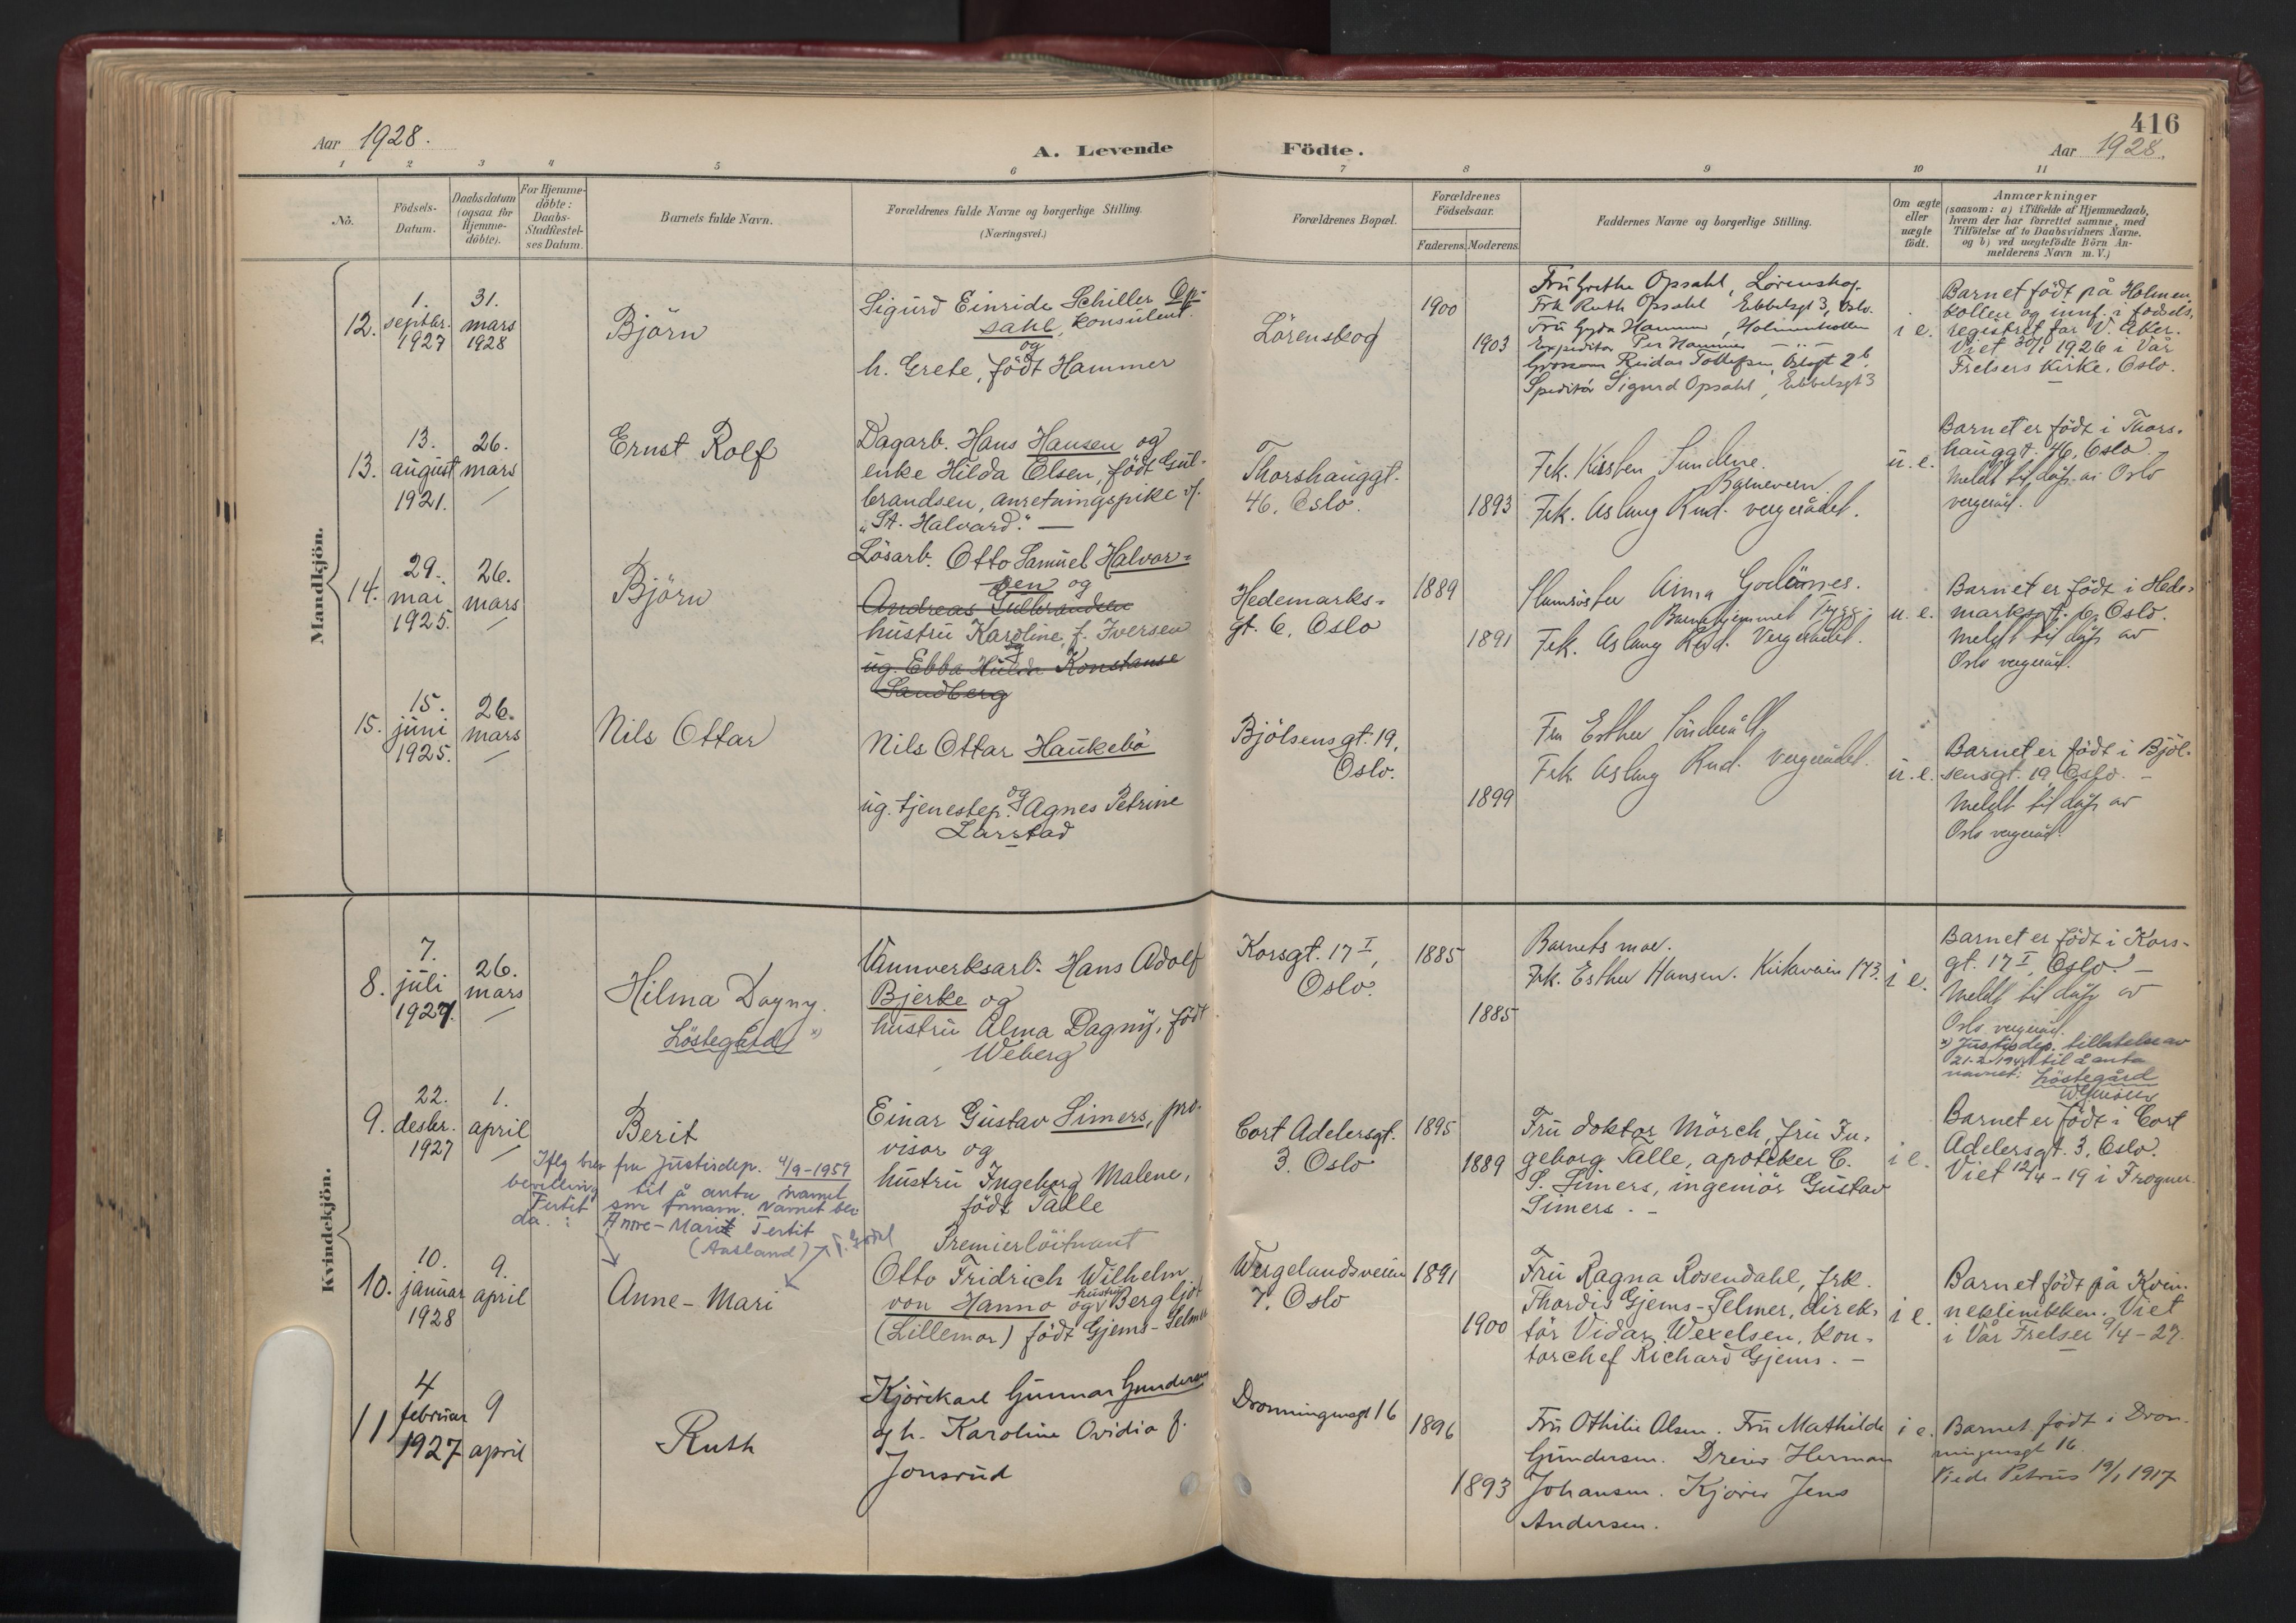 416
Aar 1928.
A. Levende Födte.
Aar 1928.
1 2 3 4 5 6 7 8 9 10 11
No.
Födsels-
Datum.
Daabsdatum
(ogsaa for
Hjemme-
döbte).
For Hjemme-
döbte:
Daabs-
Stadfæstel-
ses Datum.
Barnets fulde Navn.
Forældrenes fulde Navne og borgerlige Stilling.
(Næringsvei.)
Forældrenes Bopæl.
Forældrenes
Födselsaar.
Faderens. Moderens.
Faddernes Navne og borgerlige Stilling.
Om ægte
eller
uægte
födt.
Anmærkninger
(saasom: a) i Tilfælde af Hjemmedaab,
hvem der har forrettet samme, med
Tilföielse af to Daabsvidners Navne.
og b) ved uægtefödte Börn An-
melderens Navn m. V.)
Mandkjön.
12.
1.
septbr.
1927
31.
mars
1928
Björn
Sigurd Einride Schiller Op-
sahl, konsulent.
og
h. Grete, födt Hammer
Lörenskog
1900
1903
Fru Grethe Opsahl, Lørenskog.
Frk Ruth Opsahl Ebbelsgt 3, Oslo.
Fru Gyda Hammer, Holmenkollen
Expeditør Per Hammer — " —
Grosserer Reidar Tollefsen, Oslogt 2b.
Speditør Sigurd Opsahl, Ebbelsgt 3
i e.
Barnet födt på Holmen-
kollen og innf. i fødsels-
registret for V. Aker.
Viet 30/1 1926 i Vår
Frelsers kirke, Oslo.
13.
13.
august
1921.
26.
mars
Ernst Rolf
Dagarb. Hans Hansen og
enke Hilda Olsen, födt Gul-
brandsen, anretningspike v/
"St. Halvard." —
Thorshauggt.
46, Oslo.
1893
Frk. Kirsten Sundene.
Barnevern
Frk. Aslaug Rud. vergerådet.
u. e.
Barnet er födt i Thors-
hauggt. 46, Oslo.
Meldt til dåp av Oslo
vergeråd.
14.
29.
mai
1925.
26.
mars
Björn
Lösarb. Otto Samuel Halvor-
sen og
Andreas Gulbrandsen
hustru Karoline, f. Iversen
og
ug. Ebba Hulda Konstanse
Sandberg
Hedemarks-
gt. 6, Oslo
1889
1891
Slumsøster Anna Godtnes.
Barnehjemmet Trygg.
Frk. Aslaug Rud. Vergerådet.
u. e.
Barnet er födt i Hede-
marksgt. 6, Oslo.
Meldt til dåp av
Oslo vergeråd.
15.
15.
juni
1925.
26.
mars
Nils Ottar
Nils Ottar Haukebö
og
ug. tjenestep. Agnes Petrine
Larstad
Bjölsensgt. 19,
Oslo.
1899
Fru Esther
Frk. Aslaug Rud. Vergerådet.
u. e.
Barnet er födt i Bjöl-
sensgt. 19 Oslo. —
Meldt til dåp av
Oslo vergeråd.
Kvindekjön.
8.
7.
juli
1927.
26.
mars
Hilma Dagny
Löstegård x)
Vannverksarb. Hans Adolf
Bjerke og
hustru Alma Dagny, födt
Weberg
Korsgt. 17 I,
Oslo.
1885
1885
Barnets mor.
Frk. Esther Hansen. Kirkeveien 173.
i e.
Barnet er födt i Kors-
gt. 17 I, Oslo. —
Meldt til dåp av
Oslo vergeråd.
x) Justisdep. tillatelse av
til å anta
navnet: Löstegård
9.
22.
desbr.
1927
1.
april
Berit
Einar Gustav Simers, pro-
visor og
hustru Ingeborg Malene,
födt Talle
Cort Adelersgt.
3. Oslo
1895
1889
Fru doktor Mörch, fru In-
geborg Talle, apoteker C.
S. Simers, ingeniör Gustav
Simers. —
i e.
Barnet er födt i Cort
Adelersgt. 3, Oslo.
Viet 12/4 - 19 i Frogner.
Iflg brev fra Justisdep. 4/9-1959
bevilling til å anta navnet
Tertit som fornavn. Navnet blev
da: Anne-Marit Tertit
(Aasland)
10.
10.
januar
1928
9.
april
Anne-Mari
Premierlöitnant
Otto Fridrich Wilhelm
von Hanno og hustru Bergljot
(Lillemor) födt Gjems-Selmer
Wergelandsveien
7. Oslo
1891
1900
Fru Ragna Rosendahl, frk.
Thordis Gjems-Selmer, direk-
tör Vidar Wexelsen, kon-
torchef Richard Gjems. —
i e.
Barnet födt på Kvin-
neklinikken. Viet
i Vår Frelser 9/4 - 27.
11
4
februar
1927
9
april
Ruth
Kjörekarl Gunnar Gundersen
og h. Karoline Ovidia f.
Jonsrud
Dronningensgt 16
1896
1893
Fru Othilie Olsen. Fru Mathilde
Gundersen. Dreier Herman
Johansen. Kjører Jens
Andersen.
i e.
Barnet födt i Dron-
ningensgt 16.
Viede Petrus 19/1 1917